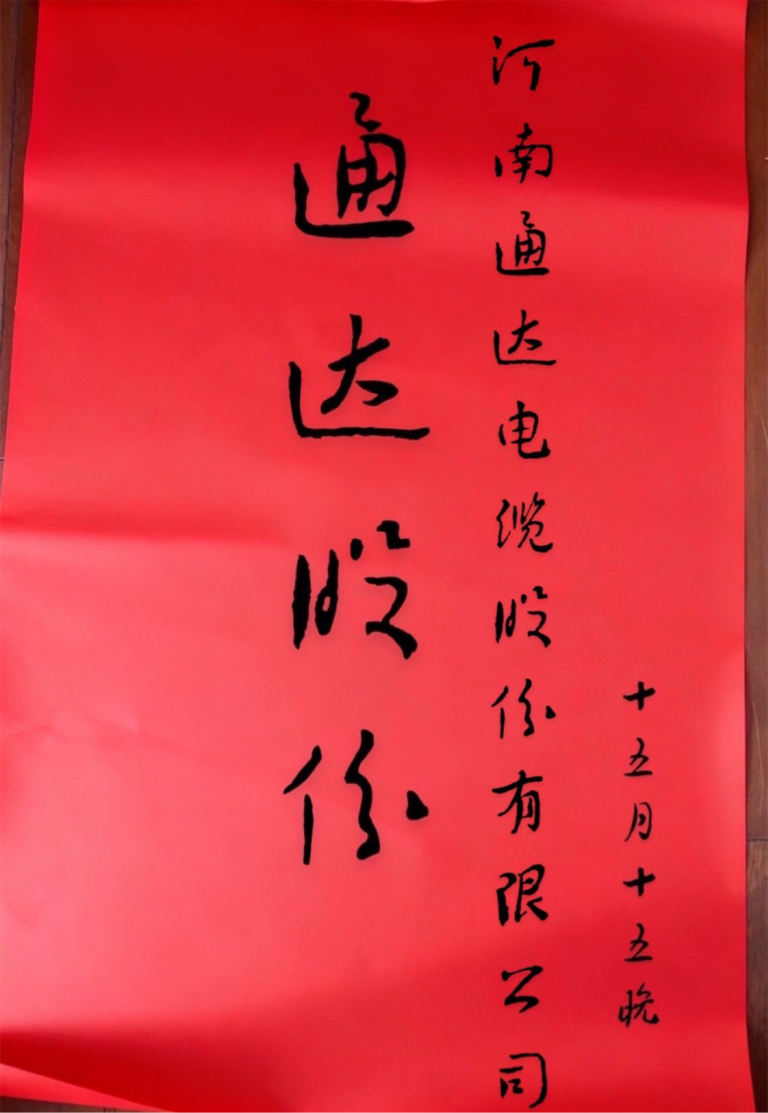 十五月十五晚
河南通达电缆股份有限公司
通达股份